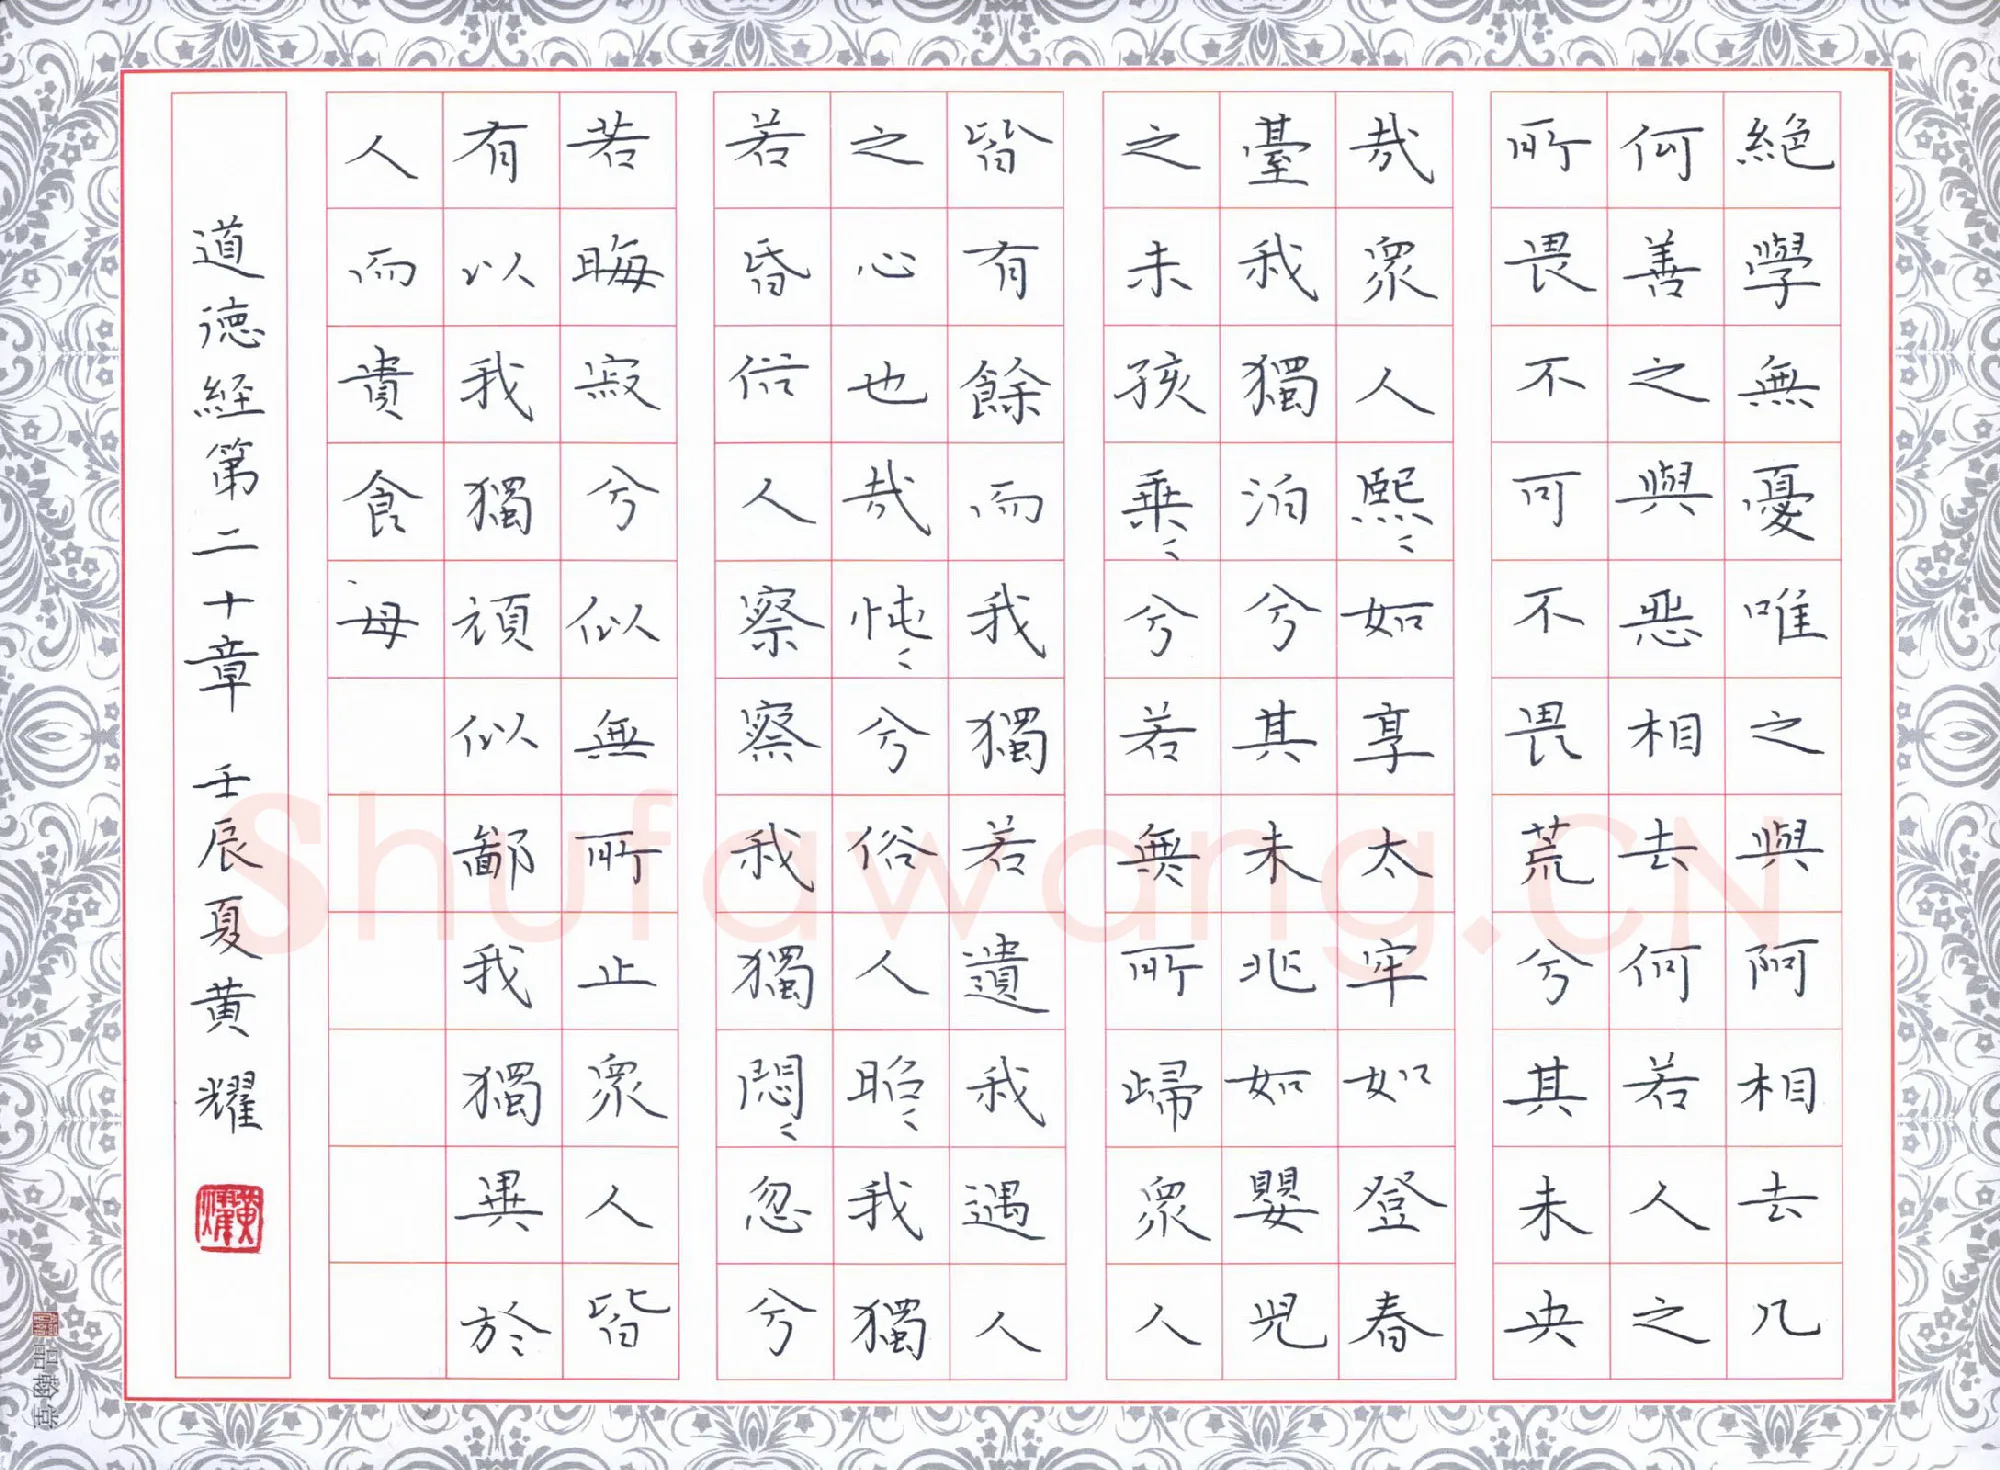 絕學無憂唯之與阿相去几
何善之與惡相去何若人之
所畏不可不畏荒兮其未央
哉衆人熙〻如享太牢如登春
臺我獨泊兮其未兆如嬰児
之未孩乗〻兮若無所歸衆人
皆有餘而我獨若遺我遇人
之心也哉忳〻兮俗人昭〻我獨
若昏俗人察察我獨悶〻忽兮
若晦寂兮似無所止衆人皆
有以我獨頑似鄙我獨異於
人而貴食母
道德経第二十章 壬辰夏黄耀
黄耀
品翰堂
Shufawang.CN